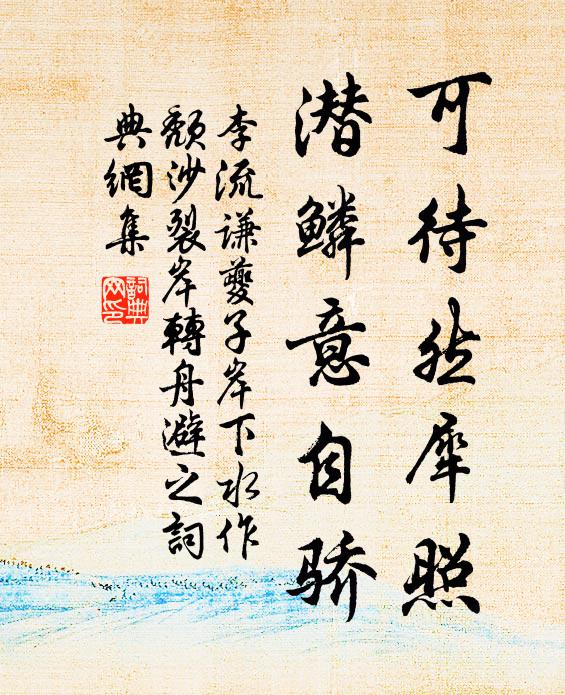 可待然犀照
潜鳞意自骄
李流谦夔子岸下水作
颓沙裂岸轉舟避之詞
典網集
詞典
网印